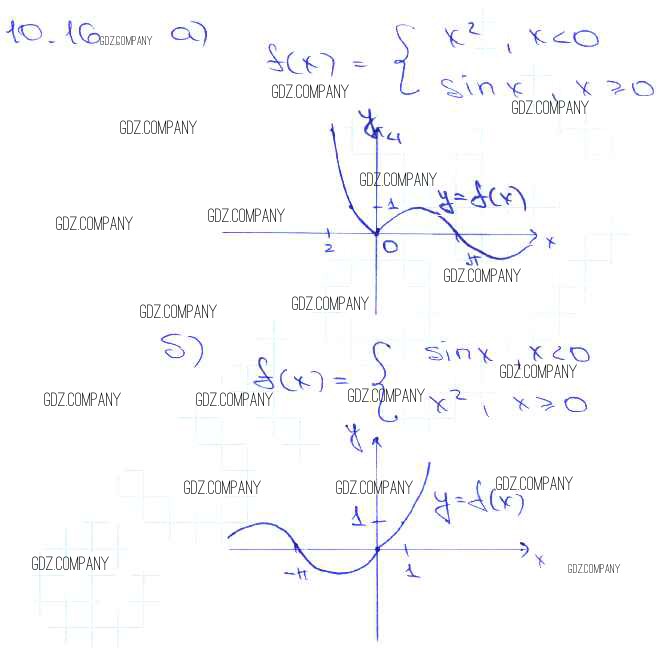 10.16 GDZ.COMPANY а)
f(x) = { x², x<0
GDZ.COMPANY
sinx, x ≥ 0
GDZ.COMPANY
GDZ.COMPANY
y
4
GDZ.COMPANY
1 y=f(x)
GDZ.COMPANY GDZ.COMPANY
2 0 π x
GDZ.COMPANY
GDZ.COMPANY GDZ.COMPANY
б)
f(x) = { sinx, x<0
GDZ.COMPANY
x², x ≥ 0
GDZ.COMPANY GDZ.COMPANY GDZ.COMPANY
y
GDZ.COMPANY GDZ.COMPANY GDZ.COMPANY
1 y=f(x)
-π 1 x
GDZ.COMPANY GDZ.COMPANY